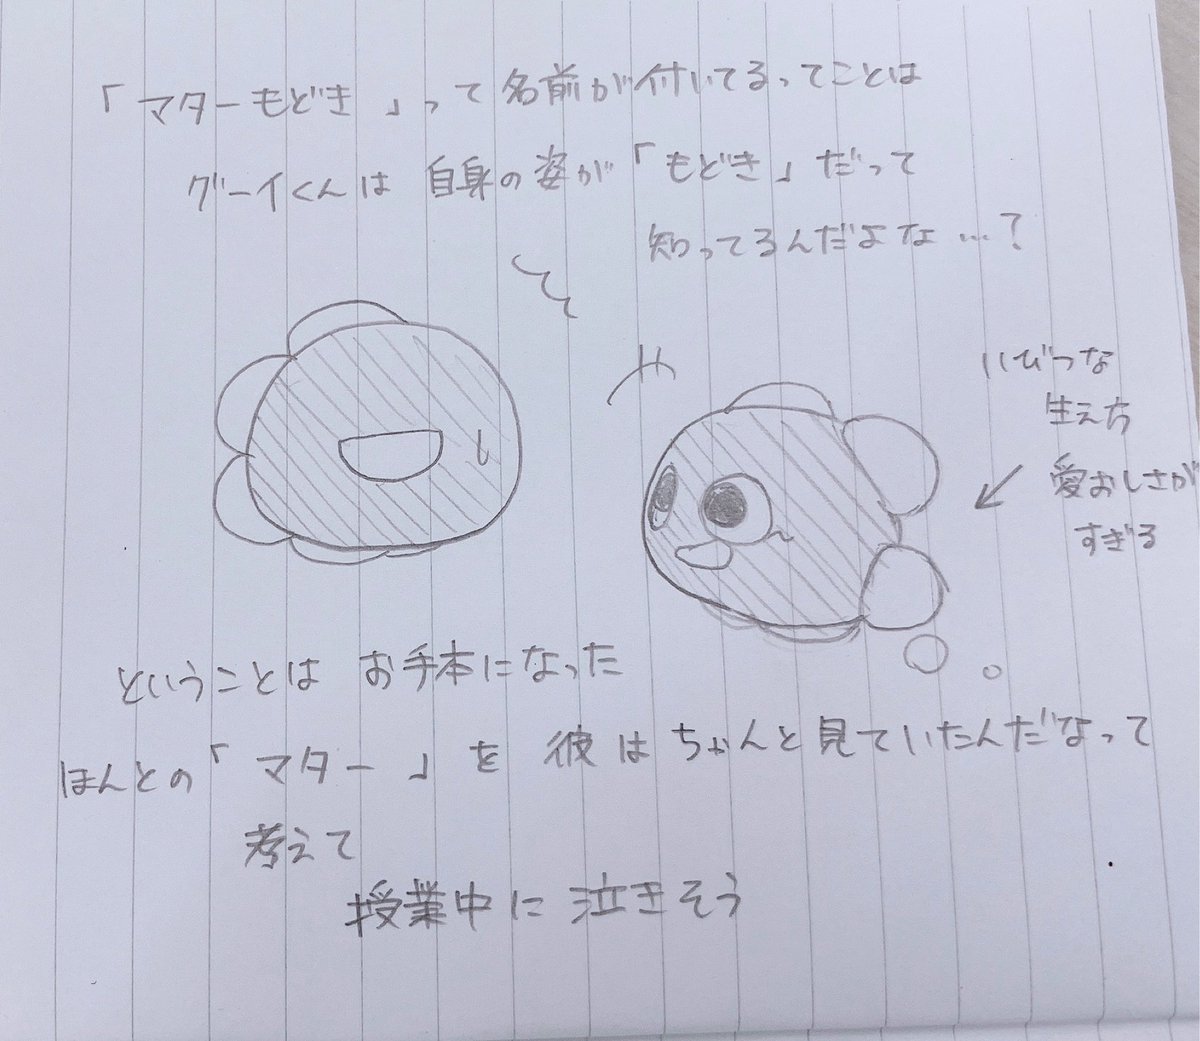 「マターもどき」って名前が付いてるってことは
グーイくんは自身の姿が「もどき」だって
知ってるんだよな…?
いびつな
生え方
愛おしさが
すぎる
ということは お手本になった
ほんとの「マター」を 彼はちゃんと見ていたんだなって
考えて
授業中に泣きそう